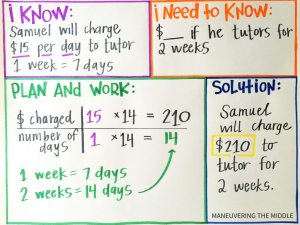 i KNOW:
Samuel will charge
$15 per day to tutor
1 week = 7 days
i Need to Know:
$__ if he tutors for
2 weeks
PLAN AND WORK:
$ charged 15 ×14 = 210
number of days 1 ×14 = 14
1 week = 7 days
2 weeks = 14 days
SOLUTION:
Samuel
will charge
$210 to
tutor for
2 weeks.
MANEUVERING THE MIDDLE